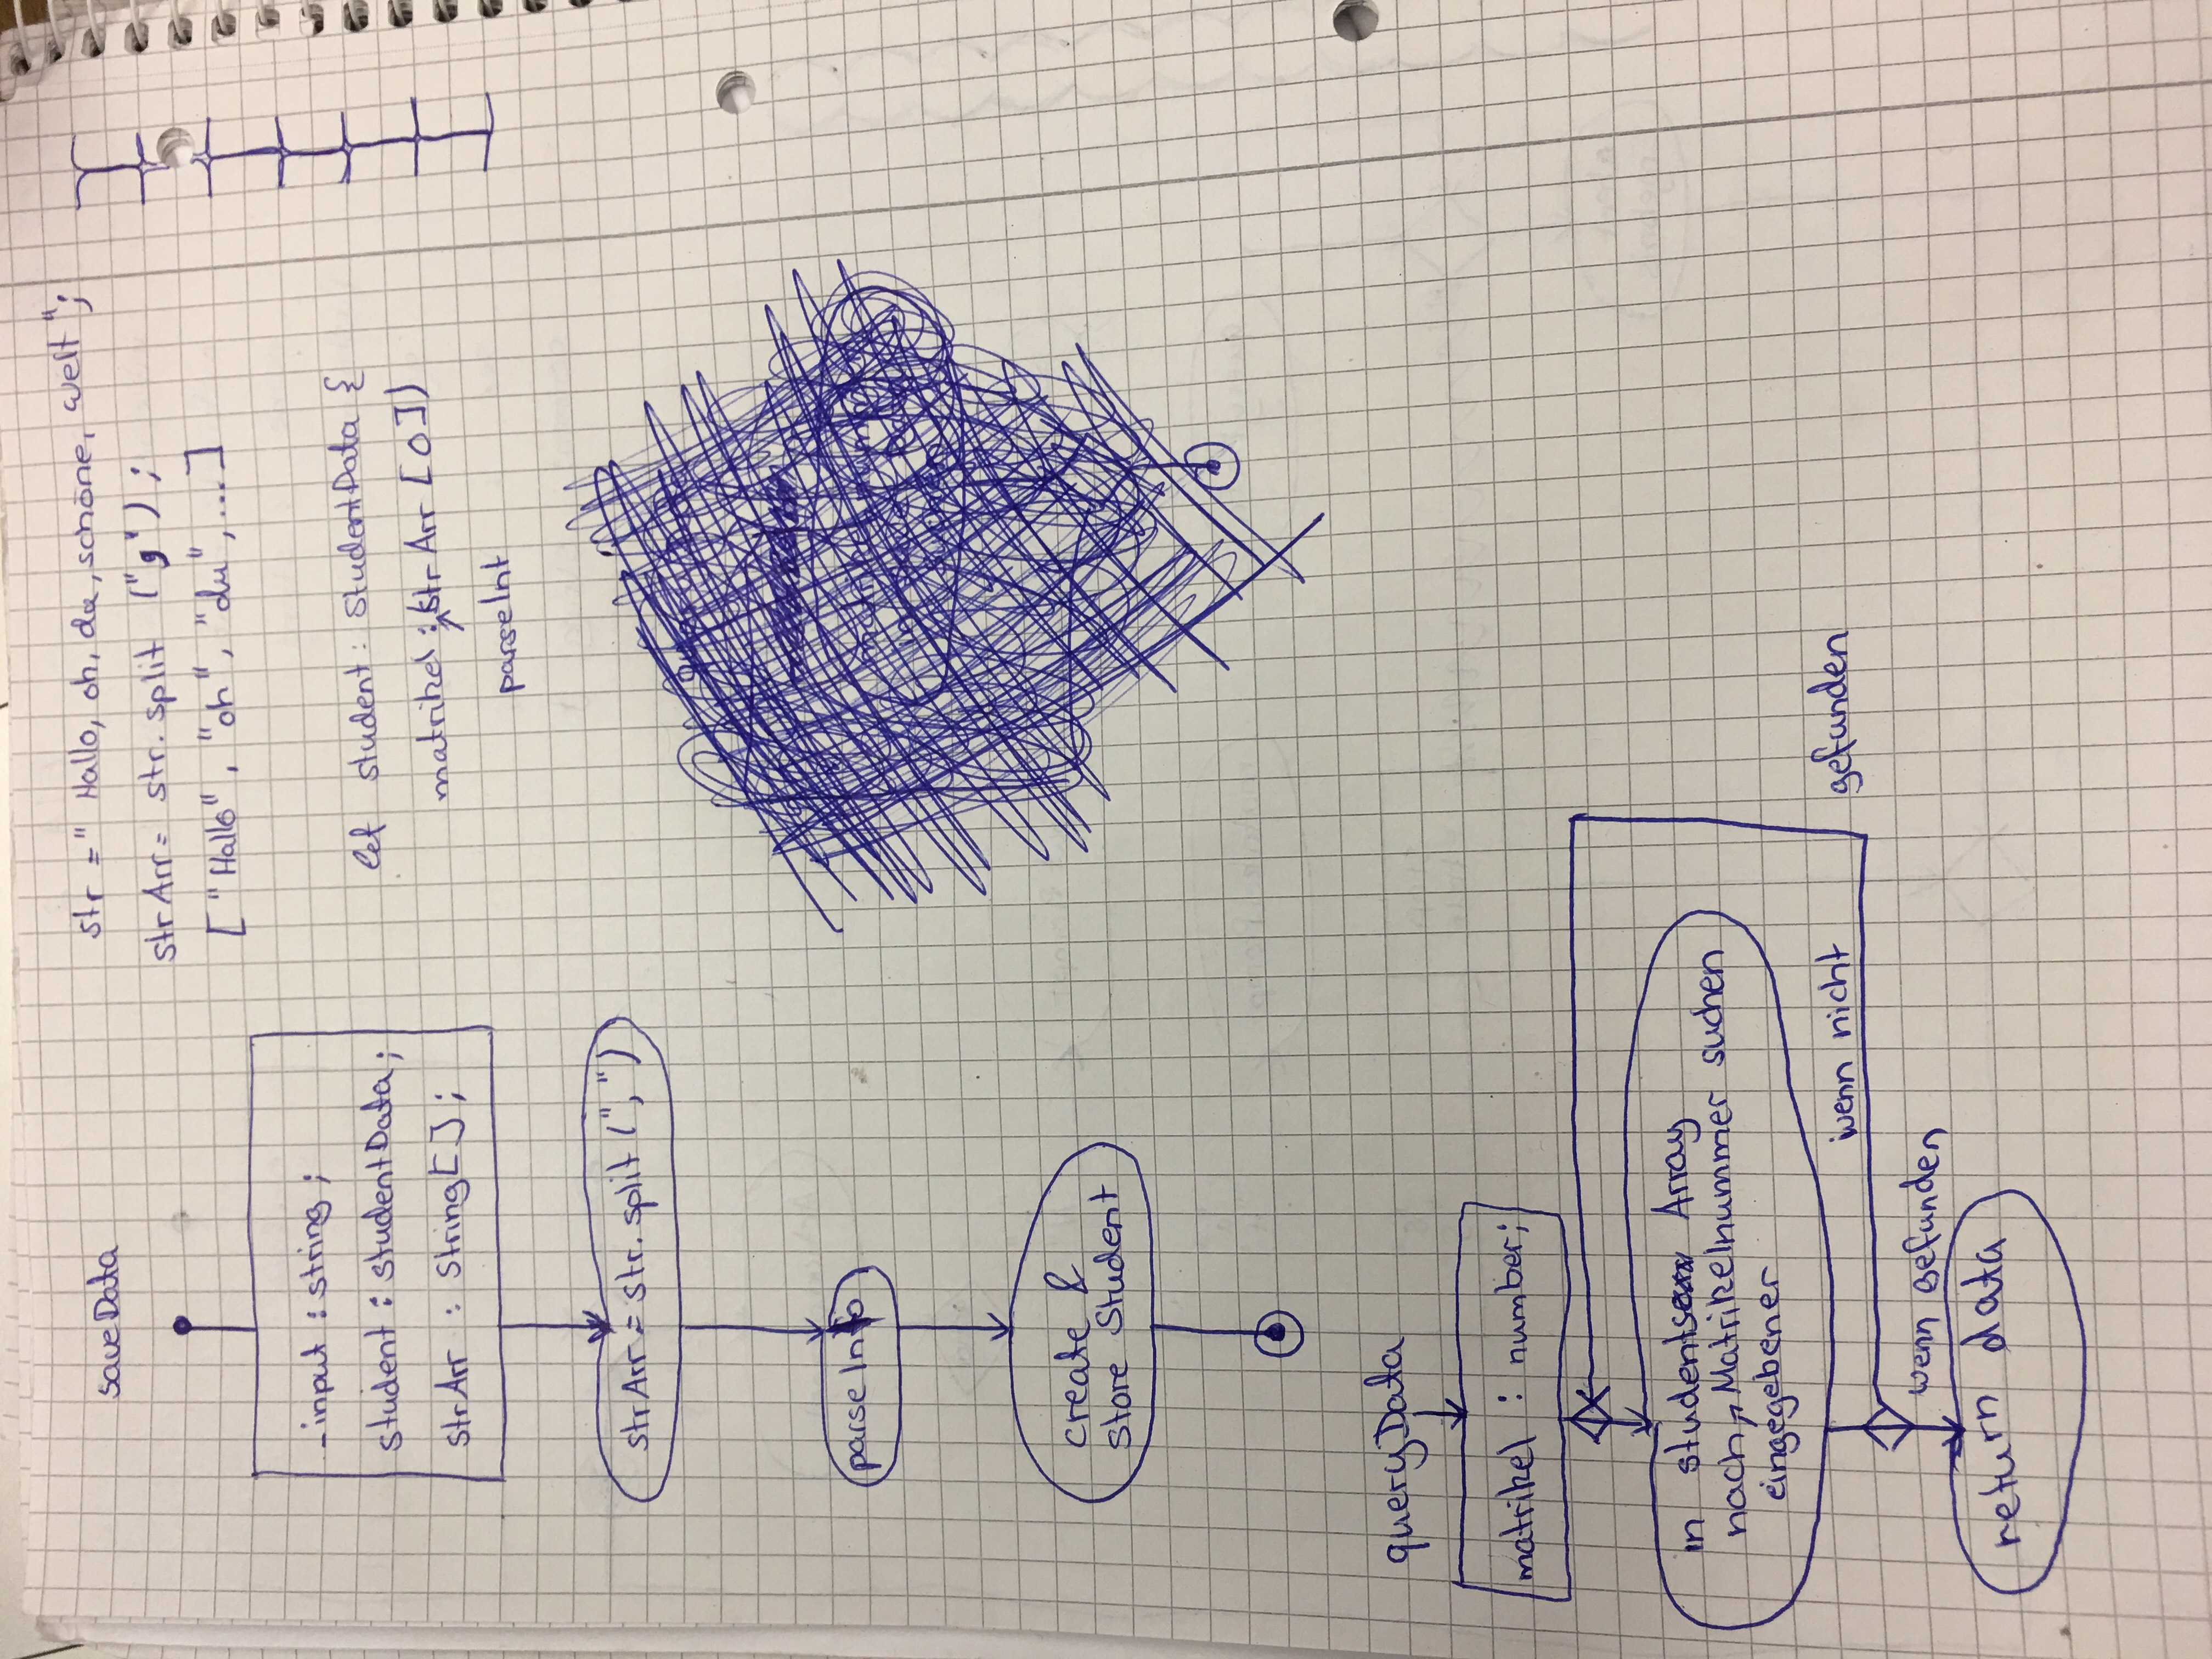 saveData
_input : string ;
student : studentData ;
strArr : String[] ;
strArr = str.split (",")
parseInfo
create &
store Student
str = " Hallo, oh, du, schöne, welt ";
strArr = str. split (",") ;
["Hallo", "oh", "du", ...]
let student : StudentData {
matrikel : (strArr [0])
parseInt
queryData
matrikel : number;
in students Array
nach Matrikelnummer suchen
eingegebener
wenn nicht gefunden
wenn gefunden
return data